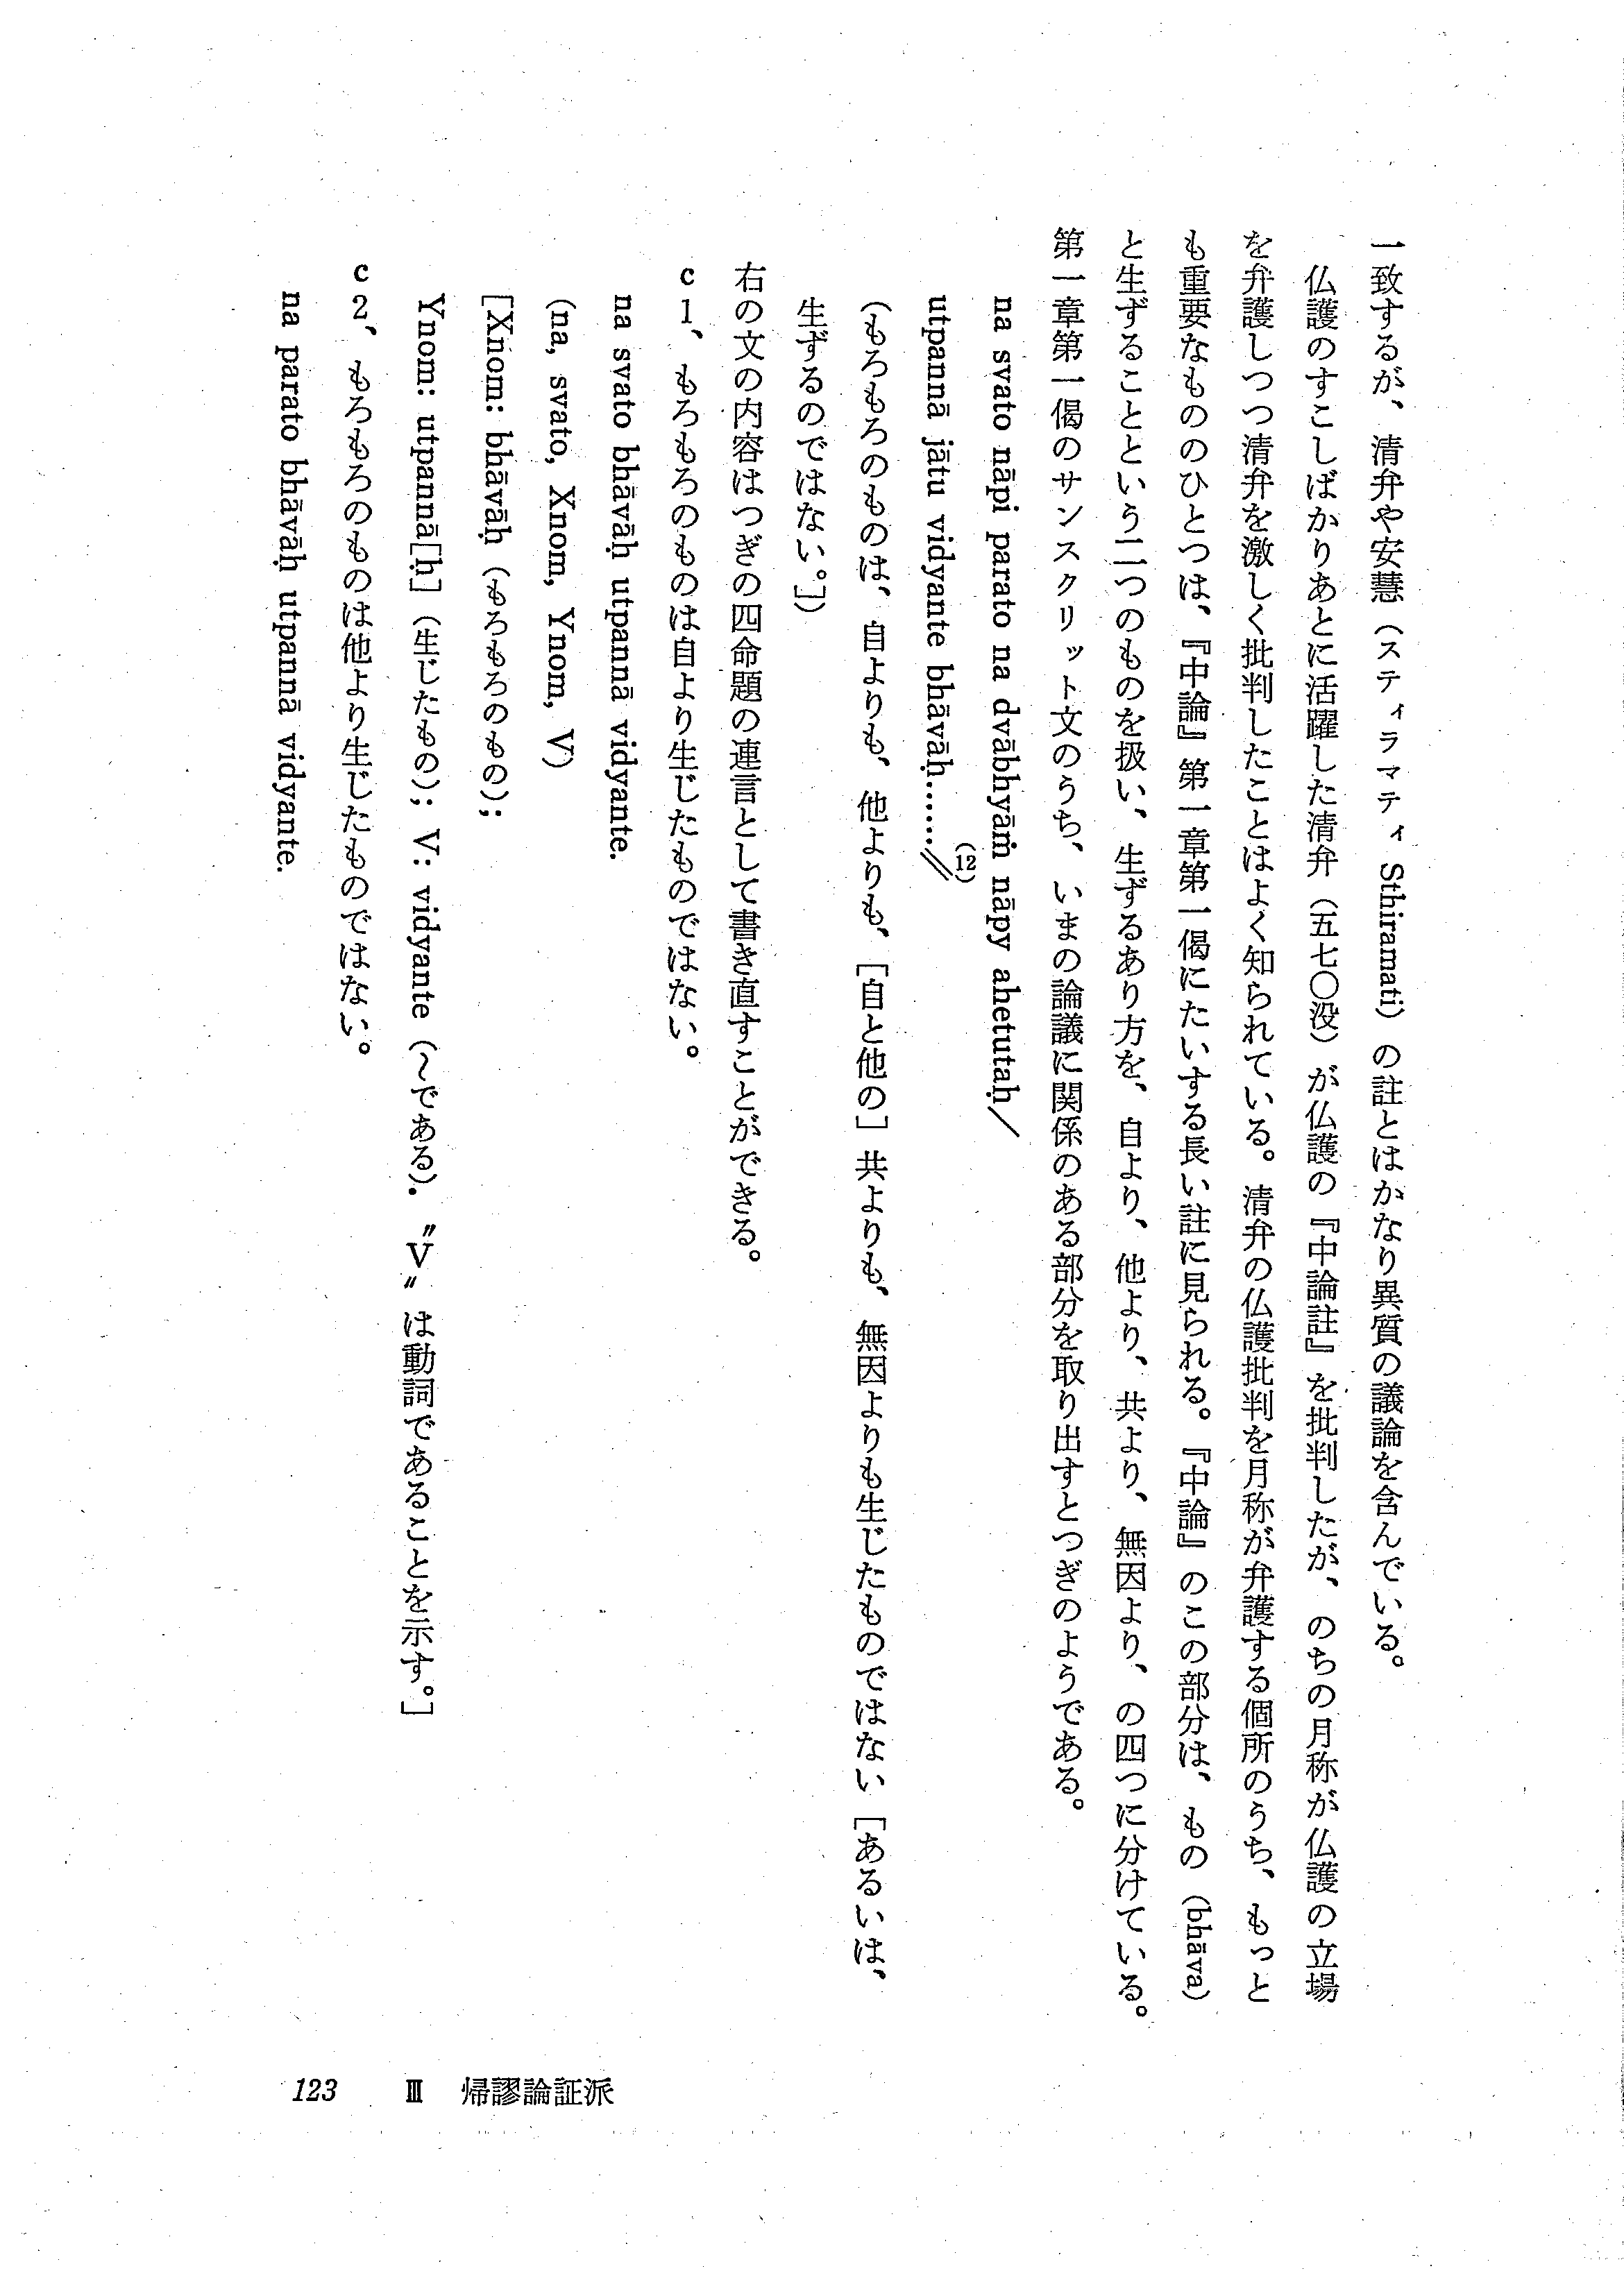 一致するが、清弁や安慧（スティラマティ Sthiramati）の註とはかなり異質の議論を含んでいる。
仏護のすこしばかりあとに活躍した清弁（五七〇没）が仏護の『中論註』を批判したが、のちの月称が仏護の立場
を弁護しつつ清弁を激しく批判したことはよく知られている。清弁の仏護批判を月称が弁護する個所のうち、もっと
も重要なもののひとつは、『中論』第一章第一偈にたいする長い註に見られる。『中論』のこの部分は、もの（bhāva）
と生ずることという二つのものを扱い、生ずるあり方を、自より、他より、共より、無因より、の四つに分けている。
第一章第一偈のサンスクリット文のうち、いまの論議に関係のある部分を取り出すとつぎのようである。
na svato nāpi parato na dvābhyāṁ nāpy ahetutaḥ／
utpannā jātu vidyante bhāvāḥ……／／(12)
（もろもろのものは、自よりも、他よりも、［自と他の］共よりも、無因よりも生じたものではない［あるいは、
生ずるのではない。］）
右の文の内容はつぎの四命題の連言として書き直すことができる。
c1、もろもろのものは自より生じたものではない。
na svato bhāvāḥ utpannā vidyante.
(na, svato, Xnom, Ynom, V)
［Xnom: bhāvāḥ（もろもろのもの）;
Ynom: utpannā[ḥ]（生じたもの）; V: vidyante（〜である）. 〝V〟は動詞であることを示す。］
c2、もろもろのものは他より生じたものではない。
na parato bhāvāḥ utpannā vidyante.
123 Ⅲ 帰謬論証派